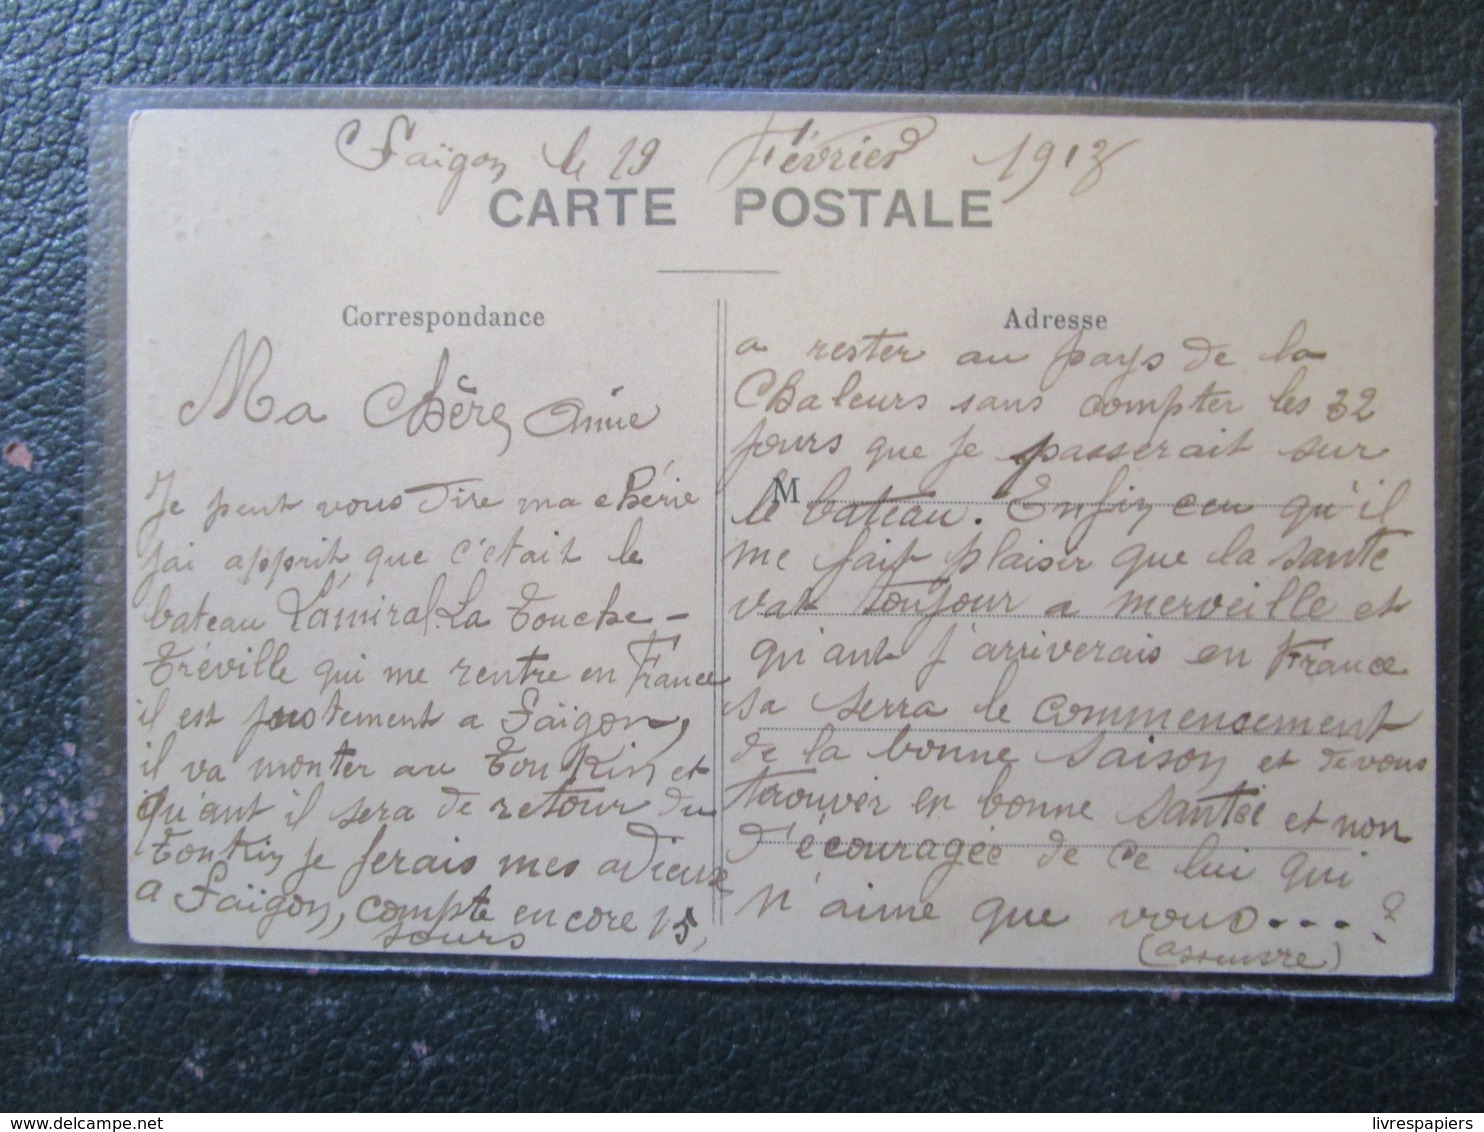 Saïgon le 19 Février 1913
CARTE POSTALE
Correspondance
Ma Chère Amie
Je peut vous dire ma chérie
j'ai apprit que c'était le
bateau L'amiral La Touche-
Tréville qui me rentre en France
il est justement a Saïgon,
il va monter au Tonkin et
qu'ant il sera de retour du
Tonkin je ferais mes adieux
a Saïgon, compte encore 15,
jours
Adresse
a rester au pays de la
Chaleurs sans compter les 32
jours que je passerait sur
M
le bateau. Enfin ceu qu'il
me fait plaisir que la sante
vat toujour a merveille et
qu'ant j'arriverais en France
sa serra le commencement
de la bonne saison et de vous
trouver en bonne santée et non
d'écouragée de ce lui qui
n'aime que vous....?
(assuivre)
livrespapiers